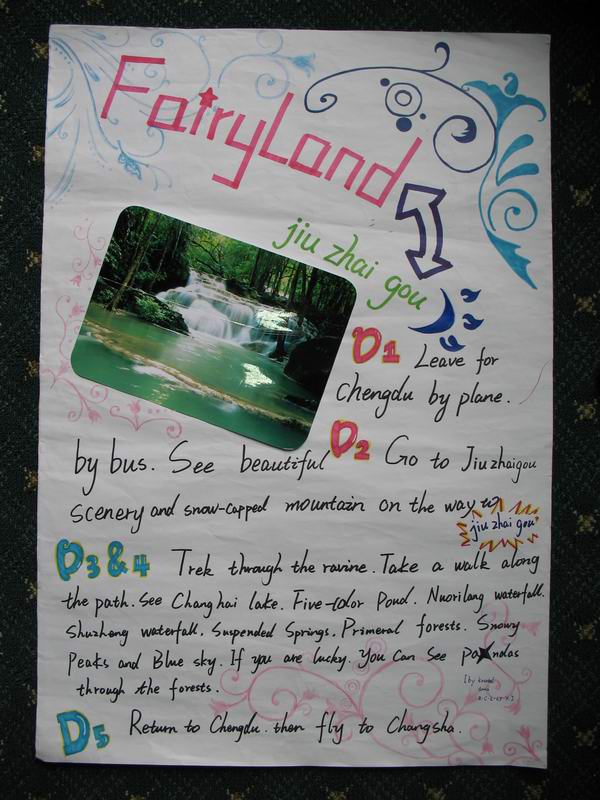 FairyLand
jiu zhai gou
D1 Leave for
Chengdu by plane.
D2 Go to Jiuzhaigou
by bus. See beautiful
scenery and snow-capped mountain on the way to
jiu zhai gou
D3&4 Trek through the ravine. Take a walk along
the path. See Changhai lake. Five-color Pond. Nuorilang waterfall.
Shuzheng waterfall. Suspended Springs. Primeral forests. Snowy
Peaks and Blue sky. If you are lucky. You can see pandas
through the forests.
[by
D5 Return to Chengdu. then fly to Changsha.